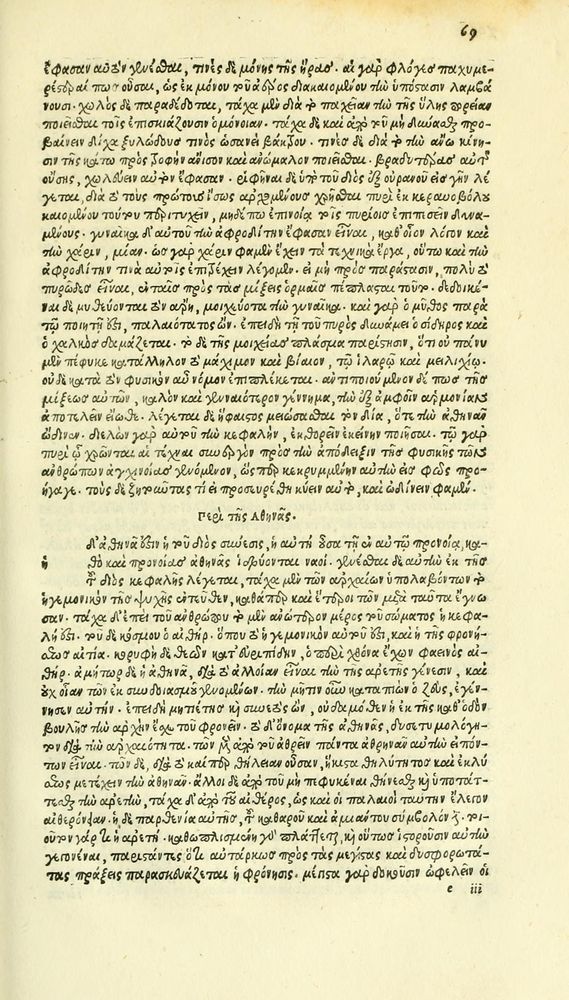 ἔφασαν αὐτὸν γενέσθαι, τινὲς δὲ μόνης τῆς ἥρας. αἱ γὰρ φλόγες παχυμε-
ρέστεραί πως οὖσαι, ὡς ἐκ μόνου τοῦ ἀέρος διακαιομένου τὴν ὑπόστασιν λαμβά
νουσι. χωλὸς δὲ παραδέδοται, τάχα μὲν διὰ τὸ παχεῖαν τὴν τῆς ὕλης πορείαν
ποιεῖσθαι τοῖς ἐπισκιάζουσιν ὁμοίαν. τάχα δὲ καὶ ἀπὸ τοῦ μὴ δύνασθαι προ-
βαίνειν δίχα ξυλώδους τινὸς ὡσανεὶ βάκτρου. τινὲς δὲ διὰ τὸ τὴν ἄνω κίνη-
σιν τῆς κάτω πρὸς τροφὴν ἄνισον καὶ ἀνώμαλον ποιεῖσθαι. βραδυτέρας αὐτ
οὔσης, χωλεύειν αὐτὸν ἔφασαν. ῥιφῆναι δὲ ὑπὸ τοῦ διὸς ἐξ οὐρανοῦ εἰς γῆν λέ
γεται, διὰ τὸ τοὺς πρώτους ἴσως ἀρξαμένους χρῆσθαι πυρὶ ἐκ κεραυνοβόλου
καιομένου τούτου περιτυχεῖν, μηδέπω ἐπινοίᾳ τοῖς πυρίοις ἐπιπεσεῖν δυνα-
μένους. γυναῖκα δ' αὐτοῦ τὴν ἀφροδίτην ἔφασαν εἶναι, καθ' οἷον λόγον καὶ
τὴν χάριν, μίαν. ὡς γὰρ χάριν φαμὲν ἔχειν τὰ τεχνικὰ ἔργα, οὕτω καὶ τὴν
ἀφροδίτην τινὰ αὐτοῖς ἐπιτρέχειν λέγομεν. εἰ μὴ πρὸς παράστασιν, πολὺ τὸ
πυρῶδες εἶναι, ἐν ταῖς πρὸς τὰς μίξεις ὁρμαῖς πέπλασται τοῦτο. δεδεκέ-
ναι δὲ μυθεύονται τὸν ἄρη, μοιχεύοντα τὴν γυναῖκα. καὶ γὰρ ὁ μῦθος παρὰ
τῷ ποιητῇ ἐστι, παλαιότατος ὤν. ἐπειδὴ τῇ τοῦ πυρὸς δυνάμει ὁ σίδηρος καὶ
ὁ χαλκὸς δαμάζεται. τὸ δὲ τῆς μοιχείας πλάσμα παρίστησιν, ὅτι οὐ πάνυ
μὲν πέφυκε κατάλληλον τὸ μάχιμον καὶ βίαιον, τῷ ἱλαρῷ καὶ μειλιχίῳ.
οὐδὲ κατὰ τὸν φυσικὸν αὐτῷ νόμον ἐπιπλέκεται. ἀντιποιούμενον δέ πως τῆς
μίξεως αὐτῶν, καλὸν καὶ γενναιότερον γέννημα, τὴν ἐξ ἀμφοῖν ἁρμονίαν
ἀποτελεῖν εἴωθε. λέγεται δὲ ἥφαιστος μαιώσασθαι τὸν δία, ὅτε τὴν ἀθηνᾶν
ὤδινεν. διελὼν γὰρ αὐτοῦ τὴν κεφαλὴν, ἐκθορεῖν ἐκείνην ποιῆσαι. τῷ γὰρ
πυρὶ ᾧ χρῶνται αἱ τέχναι συνεργὸν πρὸς τὴν ἀπόδειξιν τῆς φυσικῆς τῶν
ἀνθρώπων ἀγχινοίας γενόμενον, ὥσπερ κεκρυμμένην αὐτὴν εἰς φῶς προ-
ήγαγε. τοὺς δὲ ζητοῦντας τὶ εἰ προσευρέσθη κύειν αὐτὸ, καὶ ὠδίνειν φαμέν.
Περὶ τῆς Ἀθηνᾶς.
ἡ δ' ἀθηνᾶ ἐστιν ἡ τοῦ διὸς σύνεσις, ἡ αὐτὴ οὖσα τῇ ἐν αὐτῷ προνοίᾳ, κα-
θὸ καὶ προνοίας ἀθηνᾶς ἱδρύονται ναοί. γενέσθαι δὲ αὐτὴν ἐκ τῆς
τοῦ διὸς κεφαλῆς λέγεται, τάχα μὲν τῶν ἀρχαίων ὑπολαβόντων τὸ
ἡγεμονικὸν τῆς ψυχῆς ἐντεῦθεν, καθάπερ καὶ ἕτεροι τῶν μετὰ ταῦτα ἔγνω
σαν. τάχα δ' ἐπεὶ τοῦ ἀνθρώπου τὸ μὲν ἀνώτερον μέρος τοῦ σώματος ἡ κεφα-
λή ἐστι. τοῦ δὲ κόσμου ὁ αἰθὴρ. ὅπου τὸ ἡγεμονικὸν αὐτοῦ ἐστι, καὶ ἡ τῆς φρονή-
σεως αἰτία. κορυφὴ δὲ θεῶν κατ' εὐριπίδην, ὁ περὶ χθόνα ἔχων φαεινὸς αἰ-
θήρ. ἀμήτωρ δὲ ἡ ἀθηνᾶ, διὰ τὸ ἀλλοίαν εἶναι τὴν τῆς ἀρετῆς γένεσιν, καὶ
οὐχ οἵαν τῶν ἐκ συνδυασμοῦ γενομένων. τὴν μῆτιν οὖν καταπιὼν ὁ ζεὺς, ἐγέν-
νησεν αὐτὴν. ἐπειδὴ μητιέτης καὶ συνετὸς ὢν, οὐδαμόθεν ἢ ἐκ τῆς καθ' ἑαυτὸν
βουλῆς τὴν ἀρχὴν ἔσχε τοῦ φρονεῖν. τὸ δ' ὄνομα τῆς ἀθηνᾶς, δυσετυμολόγη-
τον διὰ τὴν ἀρχαιότητα. τῶν μὲν ἀπὸ τοῦ ἀθρεῖν πάντα ἀθρηνᾶν αὐτὴν εἰπόν-
των εἶναι. τῶν δὲ, διὰ τὸ καίπερ θήλειαν οὖσαν, ἥκιστα θηλύτητος καὶ ἐκλύ
σεως μετέχειν τὴν ἀθηνᾶν. ἄλλοι δὲ ἀπὸ τοῦ μὴ πεφυκέναι θήνεσθαι καὶ ὑποτάτ-
τεσθαι τὴν ἀρετὴν, τάχα δ' ἀπὸ τοῦ αἰθέρος, ὡς καὶ οἱ παλαιοὶ ταύτην ἔλεγον
αἰθερόνοιαν. ἡ δὲ παρθενία αὐτῆς, τοῦ καθαροῦ καὶ ἀμιάντου σύμβολόν ἐστι. τοι-
οῦτον γάρ τι ἡ ἀρετή. καθωπλισμένη δὲ πλάττεται, καὶ οὕτως ἱστοροῦσιν αὐτὴν
γεγονέναι, παριστάντες ὅτι αὐτάρκως πρὸς τὰς μεγίστας καὶ δυσφορωτά-
τας πράξεις παρασκευάζεται ἡ φρόνησις. μέγιστα γὰρ δοκοῦσιν ὠφελεῖν οἱ
e iii
69